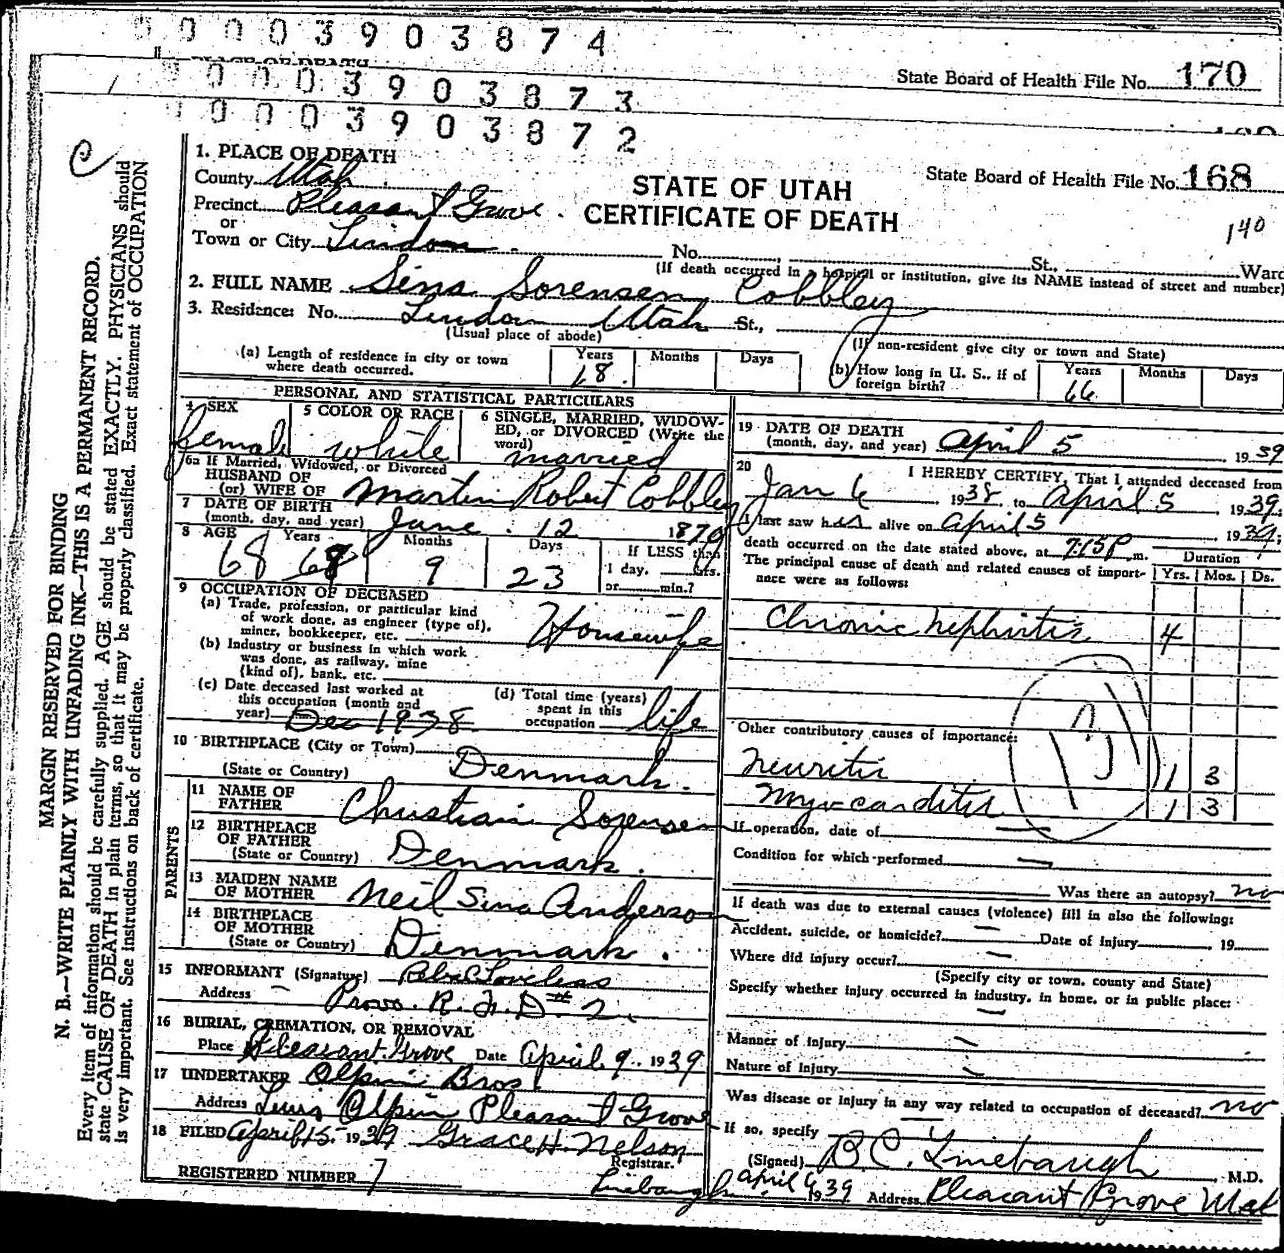 00003903874
PLACE OF DEATH
State Board of Health File No. 170
00003903873
00003903872
State Board of Health File No. 168
140
STATE OF UTAH
CERTIFICATE OF DEATH
1. PLACE OF DEATH
County Utah
Precinct Pleasant Grove
or
Town or City Lindon No. St., Ward
(If death occurred in a hospital or institution, give its NAME instead of street and number)
2. FULL NAME Sina Sorensen Cobbley
3. Residence: No. Lindon Utah St.,
(Usual place of abode) (If non-resident give city or town and State)
(a) Length of residence in city or town where death occurred. Years 68. Months Days
(b) How long in U. S., if of foreign birth? Years 66 Months Days
PERSONAL AND STATISTICAL PARTICULARS
4 SEX female
5 COLOR OR RACE white
6 SINGLE, MARRIED, WIDOWED, or DIVORCED (Write the word) married
6a If Married, Widowed, or Divorced
HUSBAND OF
(or) WIFE OF Martin Robert Cobbley
7 DATE OF BIRTH
(month, day, and year) June 12 1870
8 AGE 68 Years 68 Months 9 Days 23 If LESS than 1 day, hrs. or min.?
9 OCCUPATION OF DECEASED
(a) Trade, profession, or particular kind
of work done, as engineer (type of),
miner, bookkeeper, etc. Housewife
(b) Industry or business in which work
was done, as railway, mine
(kind of), bank, etc.
(c) Date deceased last worked at
this occupation (month and
year) Dec 1938
(d) Total time (years)
spent in this
occupation life
10 BIRTHPLACE (City or Town)
(State or Country) Denmark.
PARENTS
11 NAME OF
FATHER Christian Sorensen
12 BIRTHPLACE
OF FATHER
(State or Country) Denmark.
13 MAIDEN NAME
OF MOTHER Neil Sina Anderson
14 BIRTHPLACE
OF MOTHER
(State or Country) Denmark.
15 INFORMANT (Signature) Loveless
Address Provo. R. F. D # 2.
16 BURIAL, CREMATION, OR REMOVAL
Place Pleasant Grove Date April 9. 1939
17 UNDERTAKER Olpin Bros.
Address Olpin Pleasant Grove
18 FILED April 15 1939 Grace H. Nelson
Registrar.
REGISTERED NUMBER 7
19 DATE OF DEATH
(month, day, and year) April 5, 1939
20 I HEREBY CERTIFY, That I attended deceased from
Jan 6 1938 to April 5 1939;
I last saw her alive on April 5 1939;
death occurred on the date stated above, at 7:15 P m.
The principal cause of death and related causes of importance were as follows:
Duration
Yrs. Mos. Ds.
Chronic Nephritis 4
Other contributory causes of importance:
Neuritis 1 3
Myocarditis 1 3
If operation, date of —
Condition for which performed —
Was there an autopsy? no
If death was due to external causes (violence) fill in also the following:
Accident, suicide, or homicide? — Date of injury , 19
Where did injury occur? —
(Specify city or town, county and State)
Specify whether injury occurred in industry, in home, or in public place:
—
Manner of injury —
Nature of injury —
Was disease or injury in any way related to occupation of deceased? no
If so, specify —
(Signed) B. C. Linebaugh, M.D.
Linebaugh April 1939 Address Pleasant Grove Utah
MARGIN RESERVED FOR BINDING
N. B.—WRITE PLAINLY WITH UNFADING INK—THIS IS A PERMANENT RECORD.
Every item of information should be carefully supplied. AGE should be stated EXACTLY. PHYSICIANS should
state CAUSE OF DEATH in plain terms, so that it may be properly classified. Exact statement of OCCUPATION
is very important. See instructions on back of certificate.